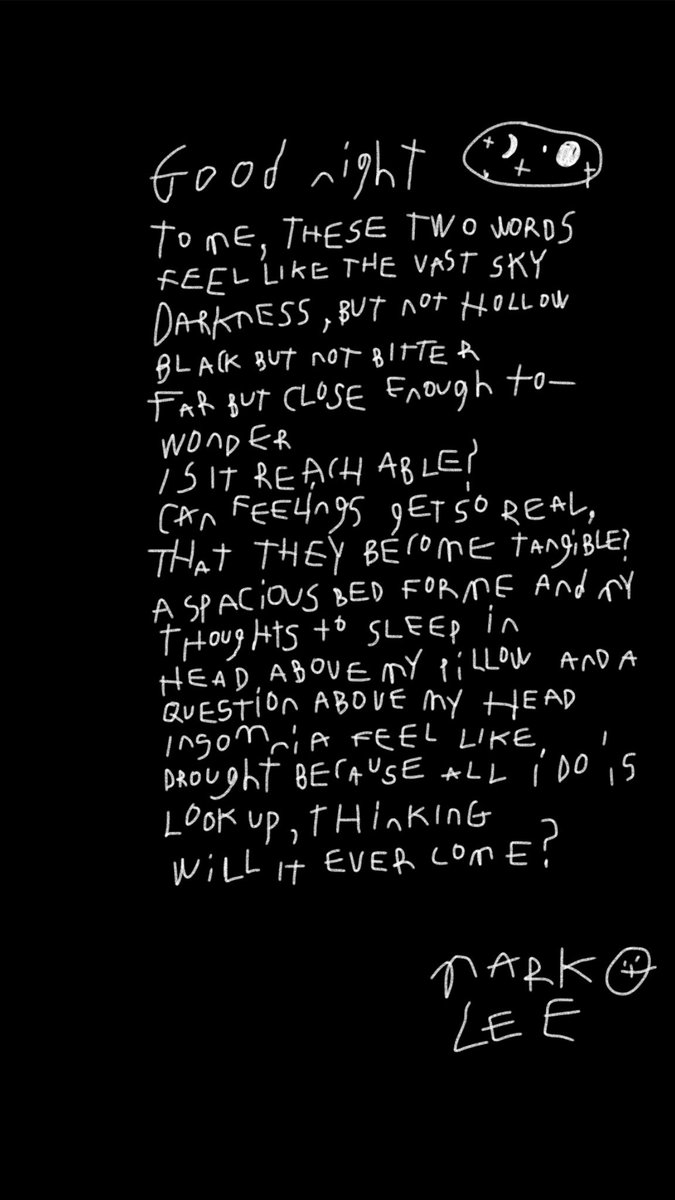 Good night
TO ME, THESE TWO WORDS
FEEL LIKE THE VAST SKY
DARKNESS, BUT NOT HOLLOW
BLACK BUT NOT BITTER
FAR BUT CLOSE Enough to—
WONDER
IS IT REACH ABLE?
CAN FEELINGS GET SO REAL,
THAT THEY BECOME TANGIBLE?
A SPACIOUS BED FOR ME AND MY
THOUGHTS TO SLEEP IN
HEAD ABOVE MY PILLOW AND A
QUESTION ABOVE MY HEAD
INSOMNIA FEEL LIKE,
DROUGHT BECAUSE ALL I DO IS
LOOK UP, THINKING
WILL IT EVER COME?
MARK
LEE